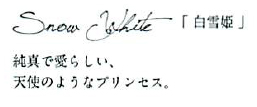 Snow White 「白雪姫」
純真で愛らしい、
天使のようなプリンセス。